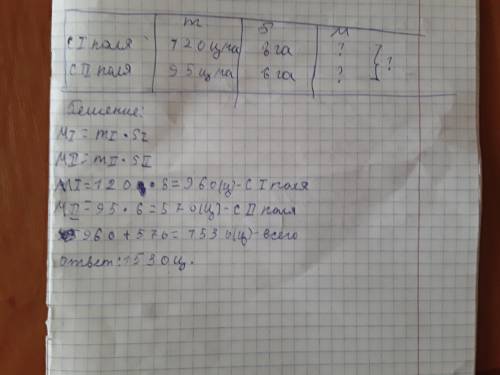 m S M
С I поля 120 ц/га 8 га ? } ?
С II поля 95 ц/га 6 га ?
Решение:
MI = mI • SI
MII = mII • SII
MI = 120 • 8 = 960 (ц) - С I поля
MII = 95 • 6 = 570 (ц) - С II поля
960 + 570 = 1530 (ц) - всего
ответ: 1530 ц.